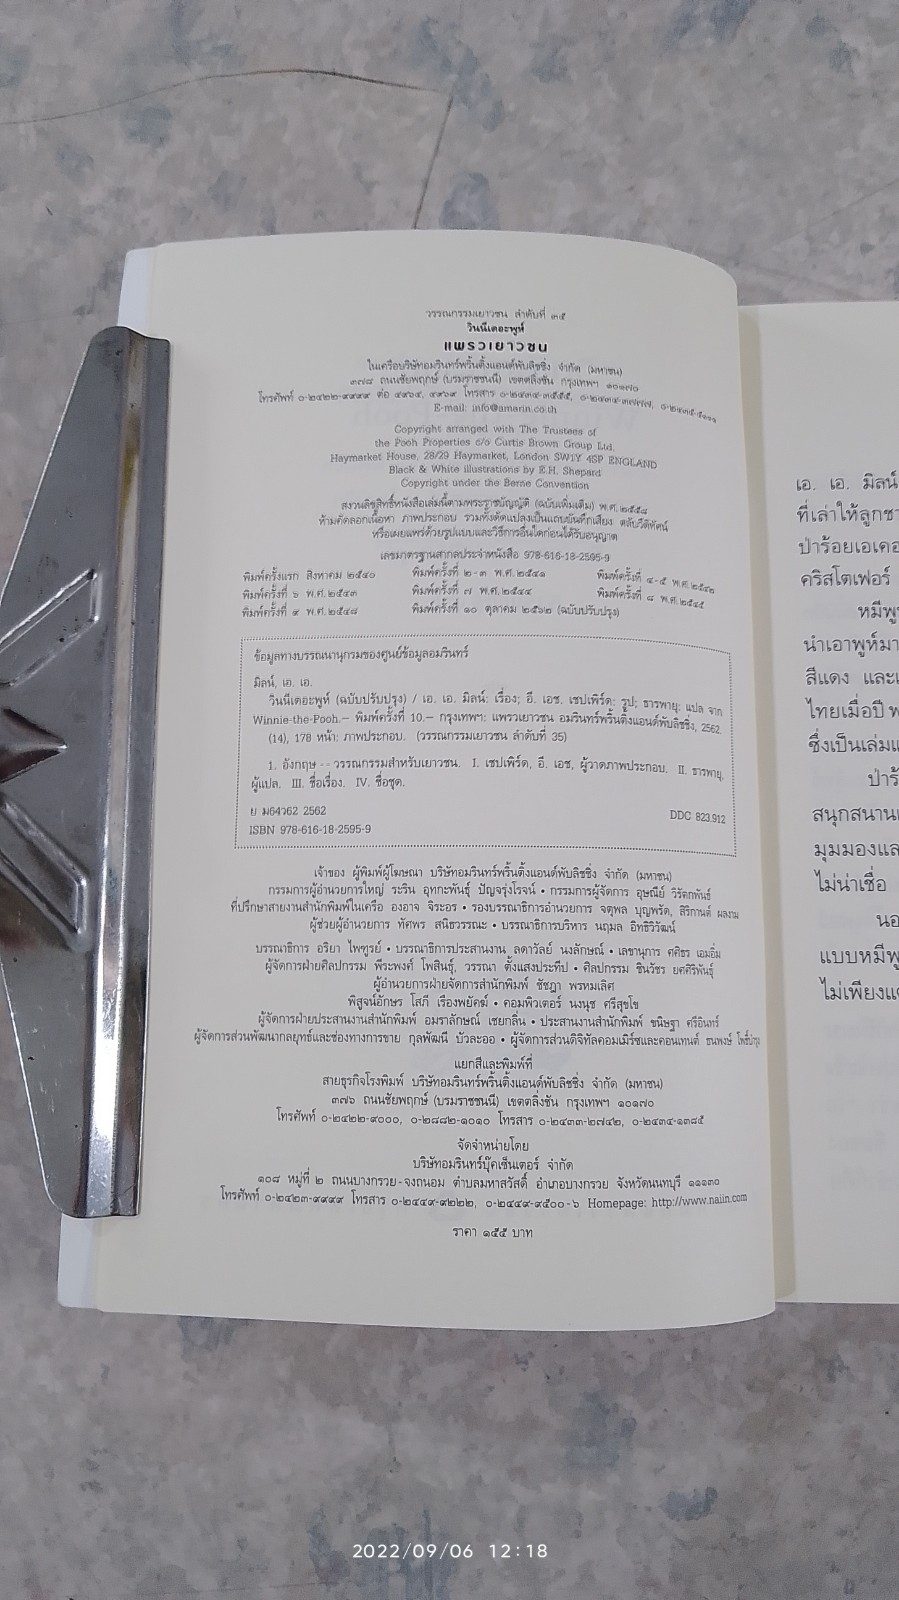 วรรณกรรมเยาวชน ลำดับที่ ๓๕
วินนีเดอะพูห์
แพรวเยาวชน
ในเครือบริษัทอมรินทร์พริ้นติ้งแอนด์พับลิชชิ่ง จำกัด (มหาชน)
๓๗๘ ถนนชัยพฤกษ์ (บรมราชชนนี) เขตตลิ่งชัน กรุงเทพฯ ๑๐๑๗๐
โทรศัพท์ ๐-๒๔๒๒-๙๙๙๙ ต่อ ๔๙๖๔, ๔๙๖๙ โทรสาร ๐-๒๔๓๔-๓๕๕๕, ๐-๒๔๓๔-๓๗๗๗, ๐-๒๔๓๕-๕๑๑๑
E-mail: info@amarin.co.th
Copyright arranged with The Trustees of
the Pooh Properties c/o Curtis Brown Group Ltd.
Haymarket House, 28/29 Haymarket, London SW1Y 4SP ENGLAND
Black & White illustrations by E.H. Shepard
Copyright under the Berne Convention
สงวนลิขสิทธิ์หนังสือเล่มนี้ตามพระราชบัญญัติ (ฉบับเพิ่มเติม) พ.ศ.๒๕๕๘
ห้ามคัดลอกเนื้อหา ภาพประกอบ รวมทั้งดัดแปลงเป็นแถบบันทึกเสียง ตลับวีดิทัศน์
หรือเผยแพร่ด้วยรูปแบบและวิธีการอื่นใดก่อนได้รับอนุญาต
เลขมาตรฐานสากลประจำหนังสือ 978-616-18-2595-9
พิมพ์ครั้งแรก สิงหาคม ๒๕๔๐ พิมพ์ครั้งที่ ๒-๓ พ.ศ.๒๕๔๑ พิมพ์ครั้งที่ ๔-๕ พ.ศ.๒๕๔๒
พิมพ์ครั้งที่ ๖ พ.ศ.๒๕๔๓ พิมพ์ครั้งที่ ๗ พ.ศ.๒๕๔๔ พิมพ์ครั้งที่ ๘ พ.ศ.๒๕๔๕
พิมพ์ครั้งที่ ๙ พ.ศ.๒๕๔๘ พิมพ์ครั้งที่ ๑๐ ตุลาคม ๒๕๖๒ (ฉบับปรับปรุง)
ข้อมูลทางบรรณานุกรมของศูนย์ข้อมูลอมรินทร์
มิลน์, เอ. เอ.
วินนีเดอะพูห์ (ฉบับปรับปรุง) / เอ. เอ. มิลน์: เรื่อง; อี. เอช. เชปเพิร์ด: รูป; ธารพายุ: แปล จาก
Winnie-the-Pooh.– พิมพ์ครั้งที่ 10.– กรุงเทพฯ: แพรวเยาวชน อมรินทร์พริ้นติ้งแอนด์พับลิชชิ่ง, 2562.
(14), 178 หน้า: ภาพประกอบ. (วรรณกรรมเยาวชน ลำดับที่ 35)
1. อังกฤษ -- วรรณกรรมสำหรับเยาวชน. I. เชปเพิร์ด, อี. เอช, ผู้วาดภาพประกอบ. II. ธารพายุ,
ผู้แปล. III. ชื่อเรื่อง. IV. ชื่อชุด.
ย ม64ว62 2562 DDC 823.912
ISBN 978-616-18-2595-9
เจ้าของ ผู้พิมพ์ผู้โฆษณา บริษัทอมรินทร์พริ้นติ้งแอนด์พับลิชชิ่ง จำกัด (มหาชน)
กรรมการผู้อำนวยการใหญ่ ระริน อุทกะพันธุ์ ปัญจรุ่งโรจน์ • กรรมการผู้จัดการ อุษณีย์ วิรัตกพันธ์
ที่ปรึกษาสายงานสำนักพิมพ์ในเครือ องอาจ จิระอร • รองบรรณาธิการอำนวยการ จตุพล บุญพรัด, สิริกานต์ ผลงาม
ผู้ช่วยผู้อำนวยการ ทัศพร สนิธวรรณะ • บรรณาธิการบริหาร นฤมล อิทธิวิวัฒน์
บรรณาธิการ อริยา ไพฑูรย์ • บรรณาธิการประสานงาน ลดาวัลย์ นงลักษณ์ • เลขานุการ ศศิธร เอมอิ่ม
ผู้จัดการฝ่ายศิลปกรรม พีระพงศ์ โพสินธุ์, วรรณา ตั้งแสงประทีป • ศิลปกรรม ชินวัชร ยศศิริพันธุ์
ผู้อำนวยการฝ่ายจัดการสำนักพิมพ์ ชัชฎา พรหมเลิศ
พิสูจน์อักษร โสภี เรืองพยัคฆ์ • คอมพิวเตอร์ นงนุช ศรีสุขโข
ผู้จัดการฝ่ายประสานงานสำนักพิมพ์ อมราลักษณ์ เชยกลิ่น • ประสานงานสำนักพิมพ์ ขนิษฐา ศรีอินทร์
ผู้จัดการส่วนพัฒนากลยุทธ์และช่องทางการขาย กุลพัฒนี บัวละออ • ผู้จัดการส่วนดิจิทัลคอมเมิร์ซและคอนเทนต์ ธนพงษ์ โพธิ์บำรุง
แยกสีและพิมพ์ที่
สายธุรกิจโรงพิมพ์ บริษัทอมรินทร์พริ้นติ้งแอนด์พับลิชชิ่ง จำกัด (มหาชน)
๓๗๖ ถนนชัยพฤกษ์ (บรมราชชนนี) เขตตลิ่งชัน กรุงเทพฯ ๑๐๑๗๐
โทรศัพท์ ๐-๒๔๒๒-๙๐๐๐, ๐-๒๘๘๒-๑๐๑๐ โทรสาร ๐-๒๔๓๓-๒๗๔๒, ๐-๒๔๓๔-๑๓๘๕
จัดจำหน่ายโดย
บริษัทอมรินทร์บุ๊คเซ็นเตอร์ จำกัด
๑๐๘ หมู่ที่ ๒ ถนนบางกรวย-จงถนอม ตำบลมหาสวัสดิ์ อำเภอบางกรวย จังหวัดนนทบุรี ๑๑๑๓๐
โทรศัพท์ ๐-๒๔๒๓-๙๙๙๙ โทรสาร ๐-๒๔๔๙-๙๒๒๒, ๐-๒๔๔๙-๙๕๐๐-๖ Homepage: http://www.naiin.com
ราคา ๑๕๕ บาท
เอ. เอ. มิลน์
ที่เล่าให้ลูกชา
ป่าร้อยเอเคอ
คริสโตเฟอร์
หมีพู
นำเอาพูห์มา
สีแดง และ
ไทยเมื่อปี พ
ซึ่งเป็นเล่มแ
ป่าร้
สนุกสนาน
มุมมองแล
ไม่น่าเชื่อ
นอ
แบบหมีพู
ไม่เพียงแ
2022/09/06 12:18